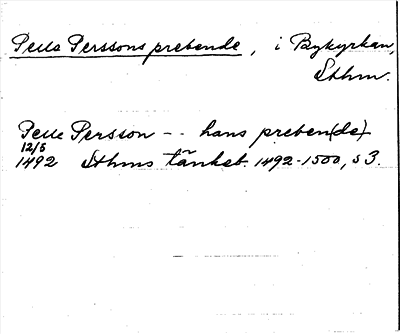 Pella Perssons prebende, i Bykyrkan,
Sthm.
Pelle Persson - - hans preben(de)
12/5
1492 Sthms tänkeb. 1492-1500, s 3.